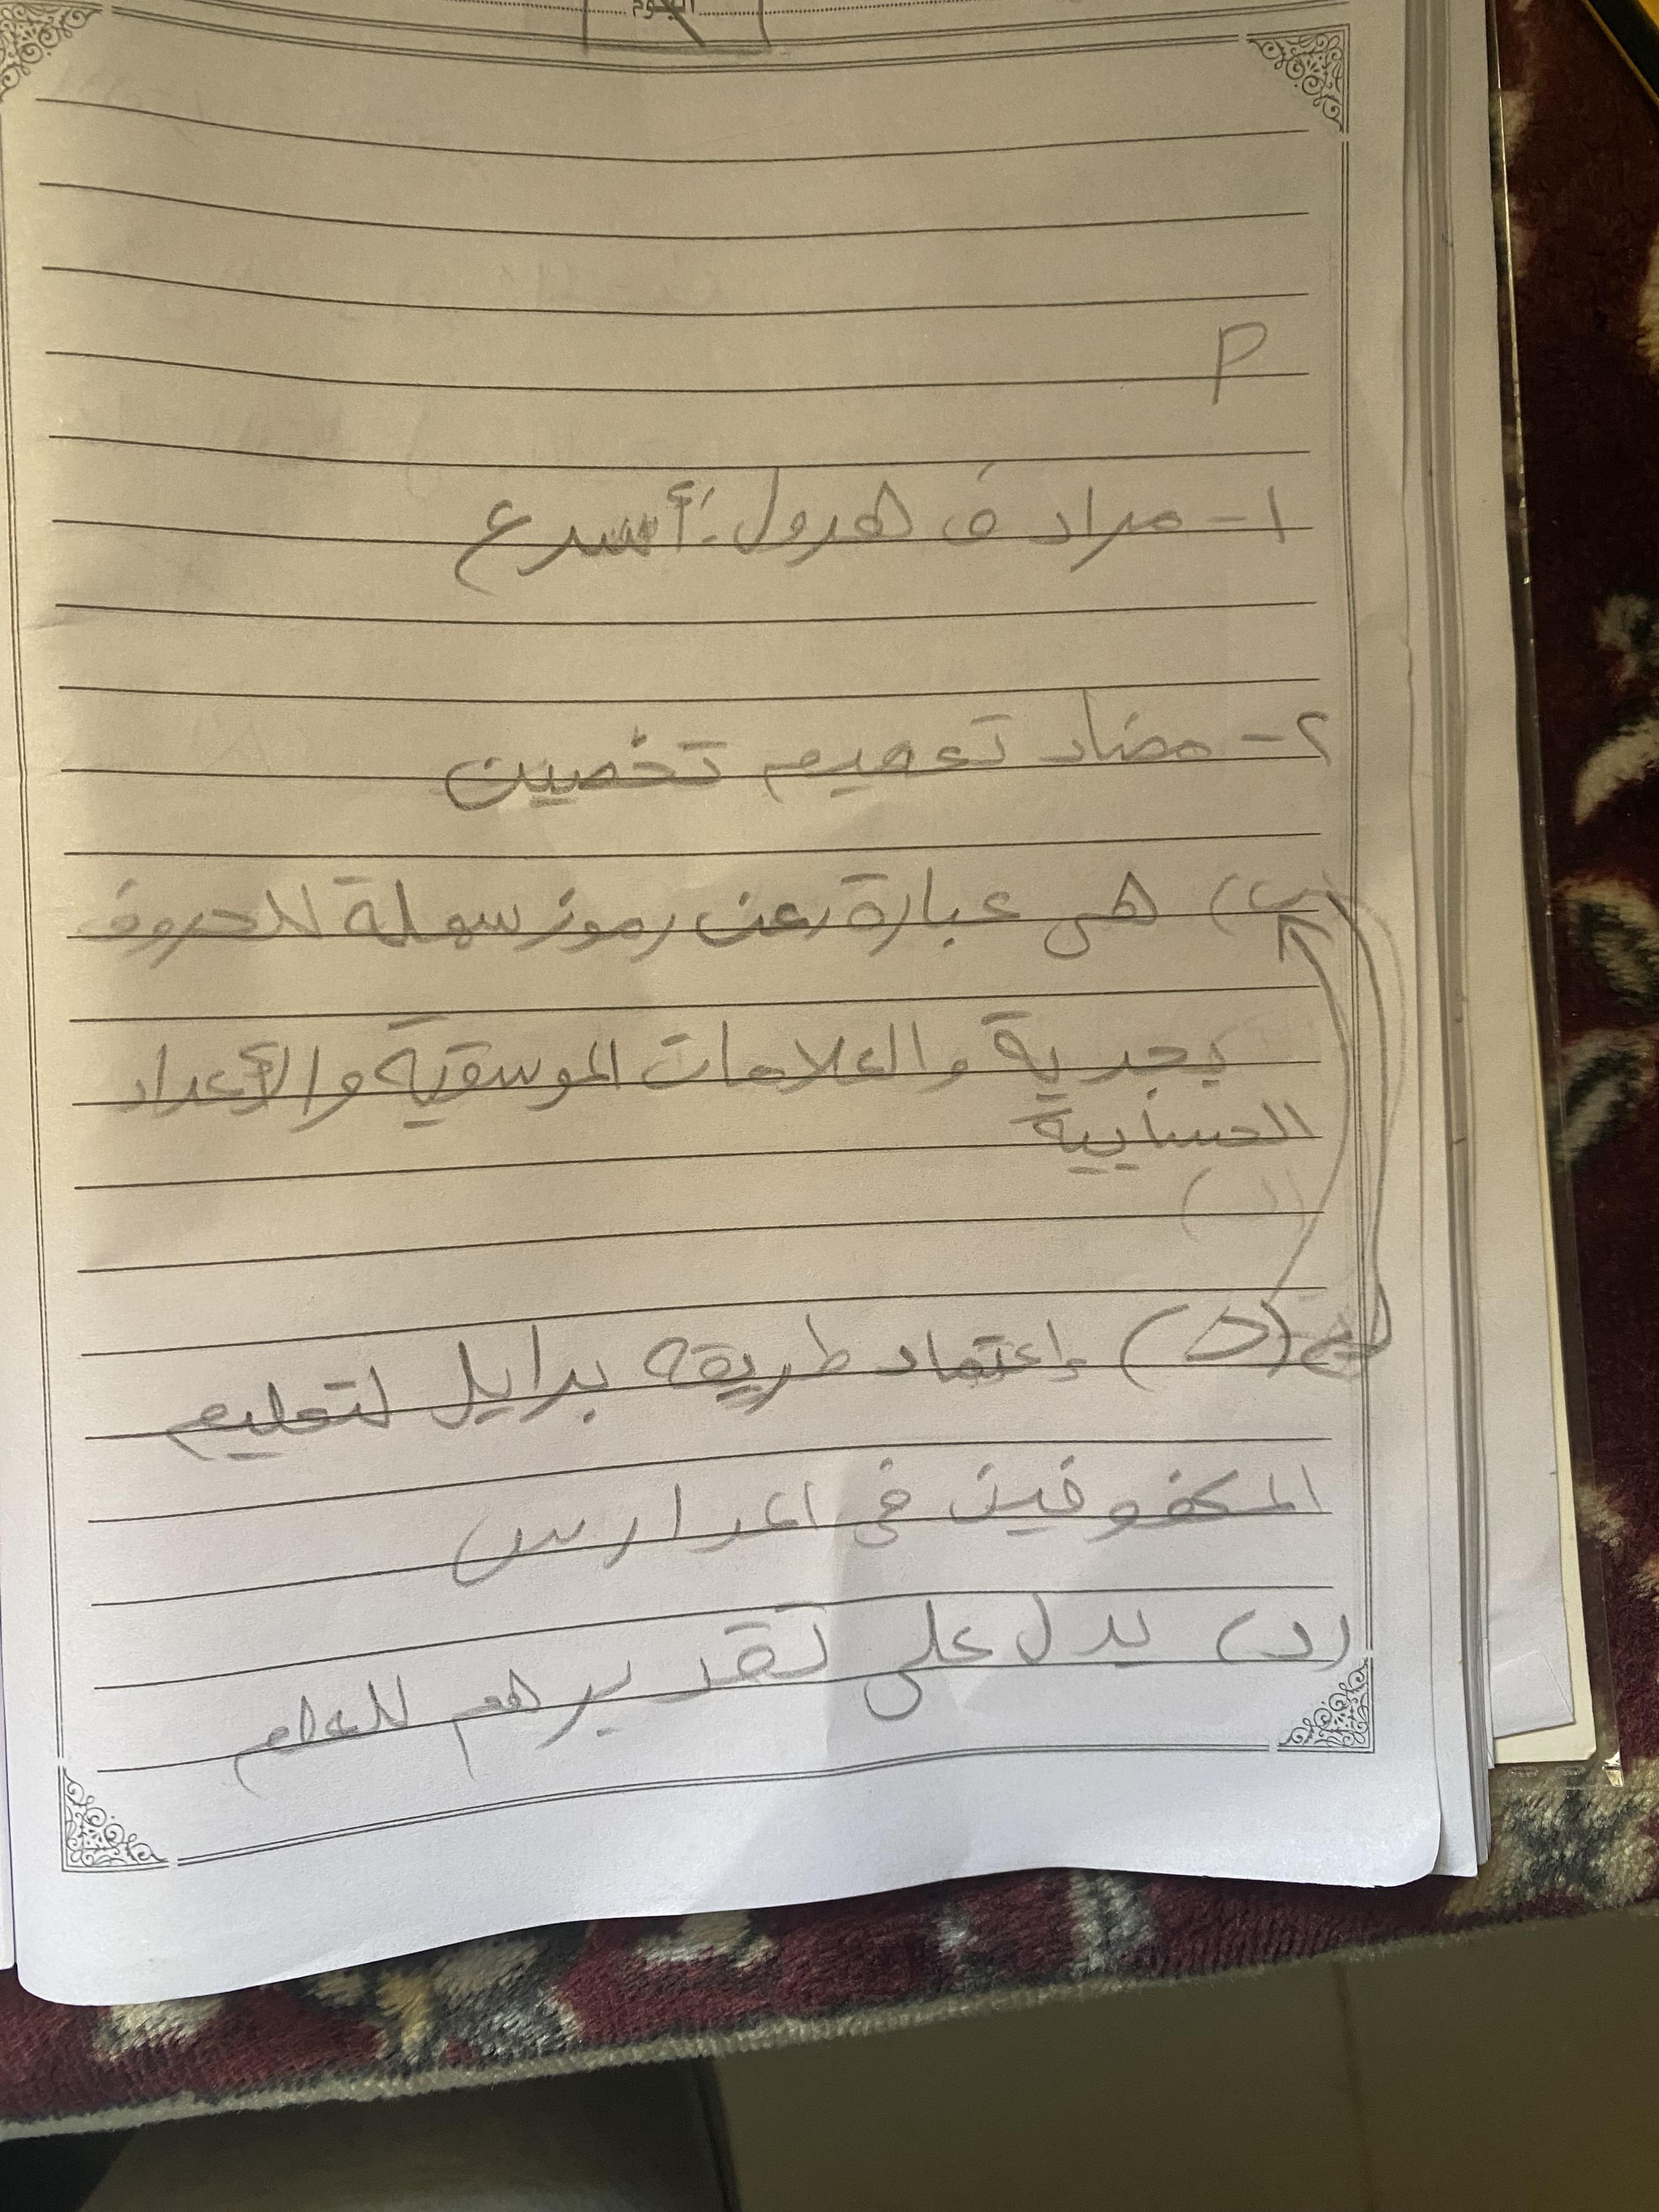 اليوم
م
١- مرادف هرول: أسرع
٢- مضاد تعميم تخصيص
(ب) هي عبارة عن رموز سهلة للحروف
بجدية والعلامات الموسقية والأعداد
الحسابية
(د)
(ج) إعتماد طريقة برايل لتعليم
المكفوفين في المدارس
(د) يدل على تقديرهم للعلم